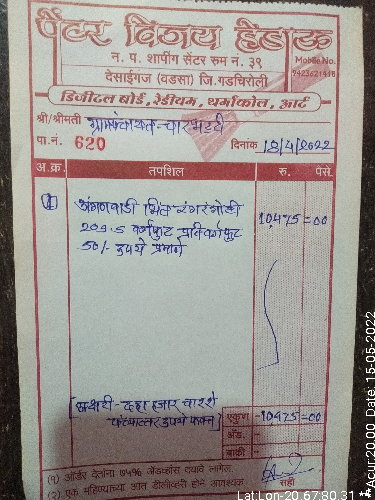 पेंटर विजय हेडाऊ
न. प. शापींग सेंटर रुम नं. ३९
Mobile No.
देसाईगंज (वडसा) जि. गडचिरोली
9423621418
डिजीटल बोर्ड, रेडीयम, थर्माकोल, आर्ट
श्री/श्रीमती ग्रामपंचायत - चारभट्टी
पा. नं. 620 दिनांक 18/4/2022
अ.क्र. तपशिल रु. पैसे.
1 अंगणवाडी भिंत रंगरंगोटी 10,475=00
209.5 वर्गफुट प्रतिवर्गफुट
50/- रुपये प्रमाणे
अक्षरी - दहा हजार चारशे
पंच्याहत्तर रुपये फक्त
एकुण -10475=00
अॅड. -
बाकी -
(१) ऑर्डर देतांना ७५% अॅडव्हांस द्यावे लागेल.
(२) एक महिण्याच्या आत डीलीवरी होणे आवश्यक
सही
Lat,Lon-20.67,80.31
**Acur:20.00 Date: 15-05-2022